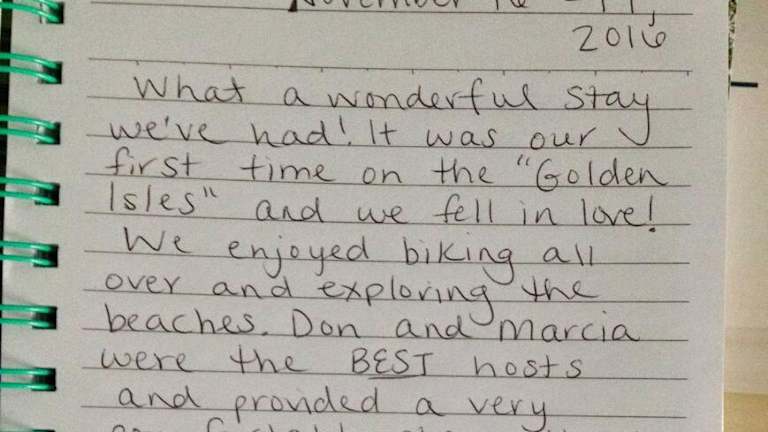 November
2016
What a wonderful stay
we've had! It was our
first time on the "Golden
Isles" and we fell in love!
We enjoyed biking all
over and exploring the
beaches. Don and Marcia
were the BEST hosts
and provided a very